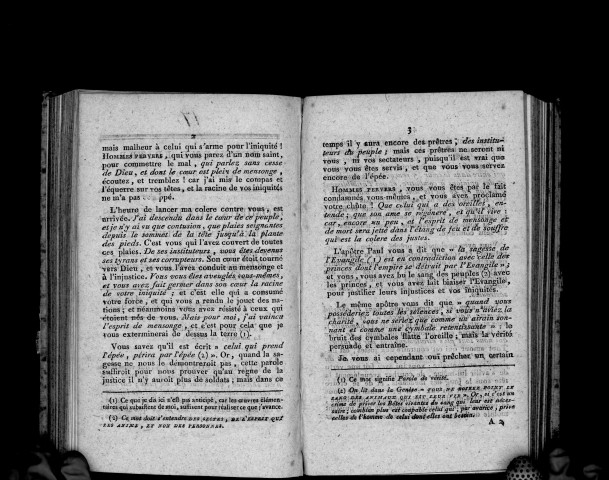 2
mais malheur à celui qui s'arme pour l'iniquité !
HOMMES PERVERS, qui vous parez d'un nom saint,
pour commettre le mal, qui parlez sans cesse
de Dieu, et dont le cœur est plein de mensonge,
écoutez, et tremblez ! car j'ai mis le compas et
l'équerre sur vos têtes, et la racine de vos iniquités
ne m'a pas
L'heure de lancer ma colere contre vous, est
arrivée. J'ai descendu dans le cœur de ce peuple,
et je n'y ai vu que contusion, que plaies seignantes
depuis le sommet de la tête jusqu'à la plante
des pieds. C'est vous qui l'avez couvert de toutes
ces plaies. De ses instituteurs, vous êtes devenus
ses tyrans et ses corrupteurs. Son cœur étoit tourné
vers Dieu, et vous l'avez conduit au mensonge et
à l'injustice. Vous vous êtes aveuglés vous-mêmes,
et vous avez fait germer dans son cœur la racine
de votre iniquité ; et c'est elle qui a consumé
votre force, et qui vous a rendu le jouet des na-
tions ; et néanmoins vous avez résisté à ceux qui
étoient nés de vous. Mais pour moi, j'ai vaincu
l'esprit de mensonge, et c'est pour cela que je
vous exterminerai de dessus la terre (1).
Vous savez qu'il est écrit « celui qui prend
l'épée, périra par l'épée (2) ». Or, quand la sa-
gesse ne nous le démontreroit pas, cette parole
suffiroit pour nous prouver qu'au regne de la
justice il n'y auroit plus de soldats ; mais dans ce
(1) Ce que je dis ici s'est pas anticipé, car les œuvres élémen-
taires qui subsistent de moi, suffisent pour réaliser ce que j'avance.
(2) Ce mot doit s'entendre DES ACTES, DE L'ESPRIT QUI
LES ANIME, ET NON DES PERSONNES.
3
temps il y aura encore des prêtres, des institu-
teurs du peuple ; mais ces prêtres ne seront ni
vous, ni vos sectateurs, puisqu'il est vrai que
vous vous êtes servis, et que vous vous servez
encore de l'épée.
HOMMES PERVERS, vous vous êtes par le fait
condamnés vous-mêmes, et vous avez proclamé
votre chûte ! Que celui qui a des oreilles, en-
tende ; que son ame se régénere, et qu'il vive :
car, encore un peu, et l'esprit de mensonge et
de mort sera jetté dans l'étang de feu et de souffre
qui est la colere des justes.
L'apôtre Paul vous a dit que « la sagesse de
l'Evangile (1) est en contradiction avec celle des
princes dont l'empire se détruit par l'Evangile » ;
et vous, vous avez bu le sang des peuples (2) avec
les princes, et vous avez fait biaiser l'Evangile,
pour justifier leurs injustices et vos iniquités.
Le même apôtre vous dit que » quand vous
posséderiez toutes les sciences, si vous n'aviez la
charité, vous ne seriez que comme un airain son-
nant et comme une cymbale retentissante » : le
bruit des cymbales flatte l'oreille ; mais la vérité
persuade et entraîne.
Je vous ai cependant oui prêcher un certain
(1) Ce mot signifie Parole de vérité.
(2) On lit dans la Genèse « VOUS NE BOIREZ POINT LE
SANG DES ANIMAUX QUI EST LEUR VIE » Or, si c'est un
crime de priver les Bêtes vivantes du sang qui leur est néces-
saire ; combien plus est coupable celui qui, par avarice, prive
celles de l'homme de celui dont elles ont besoin.
A 2